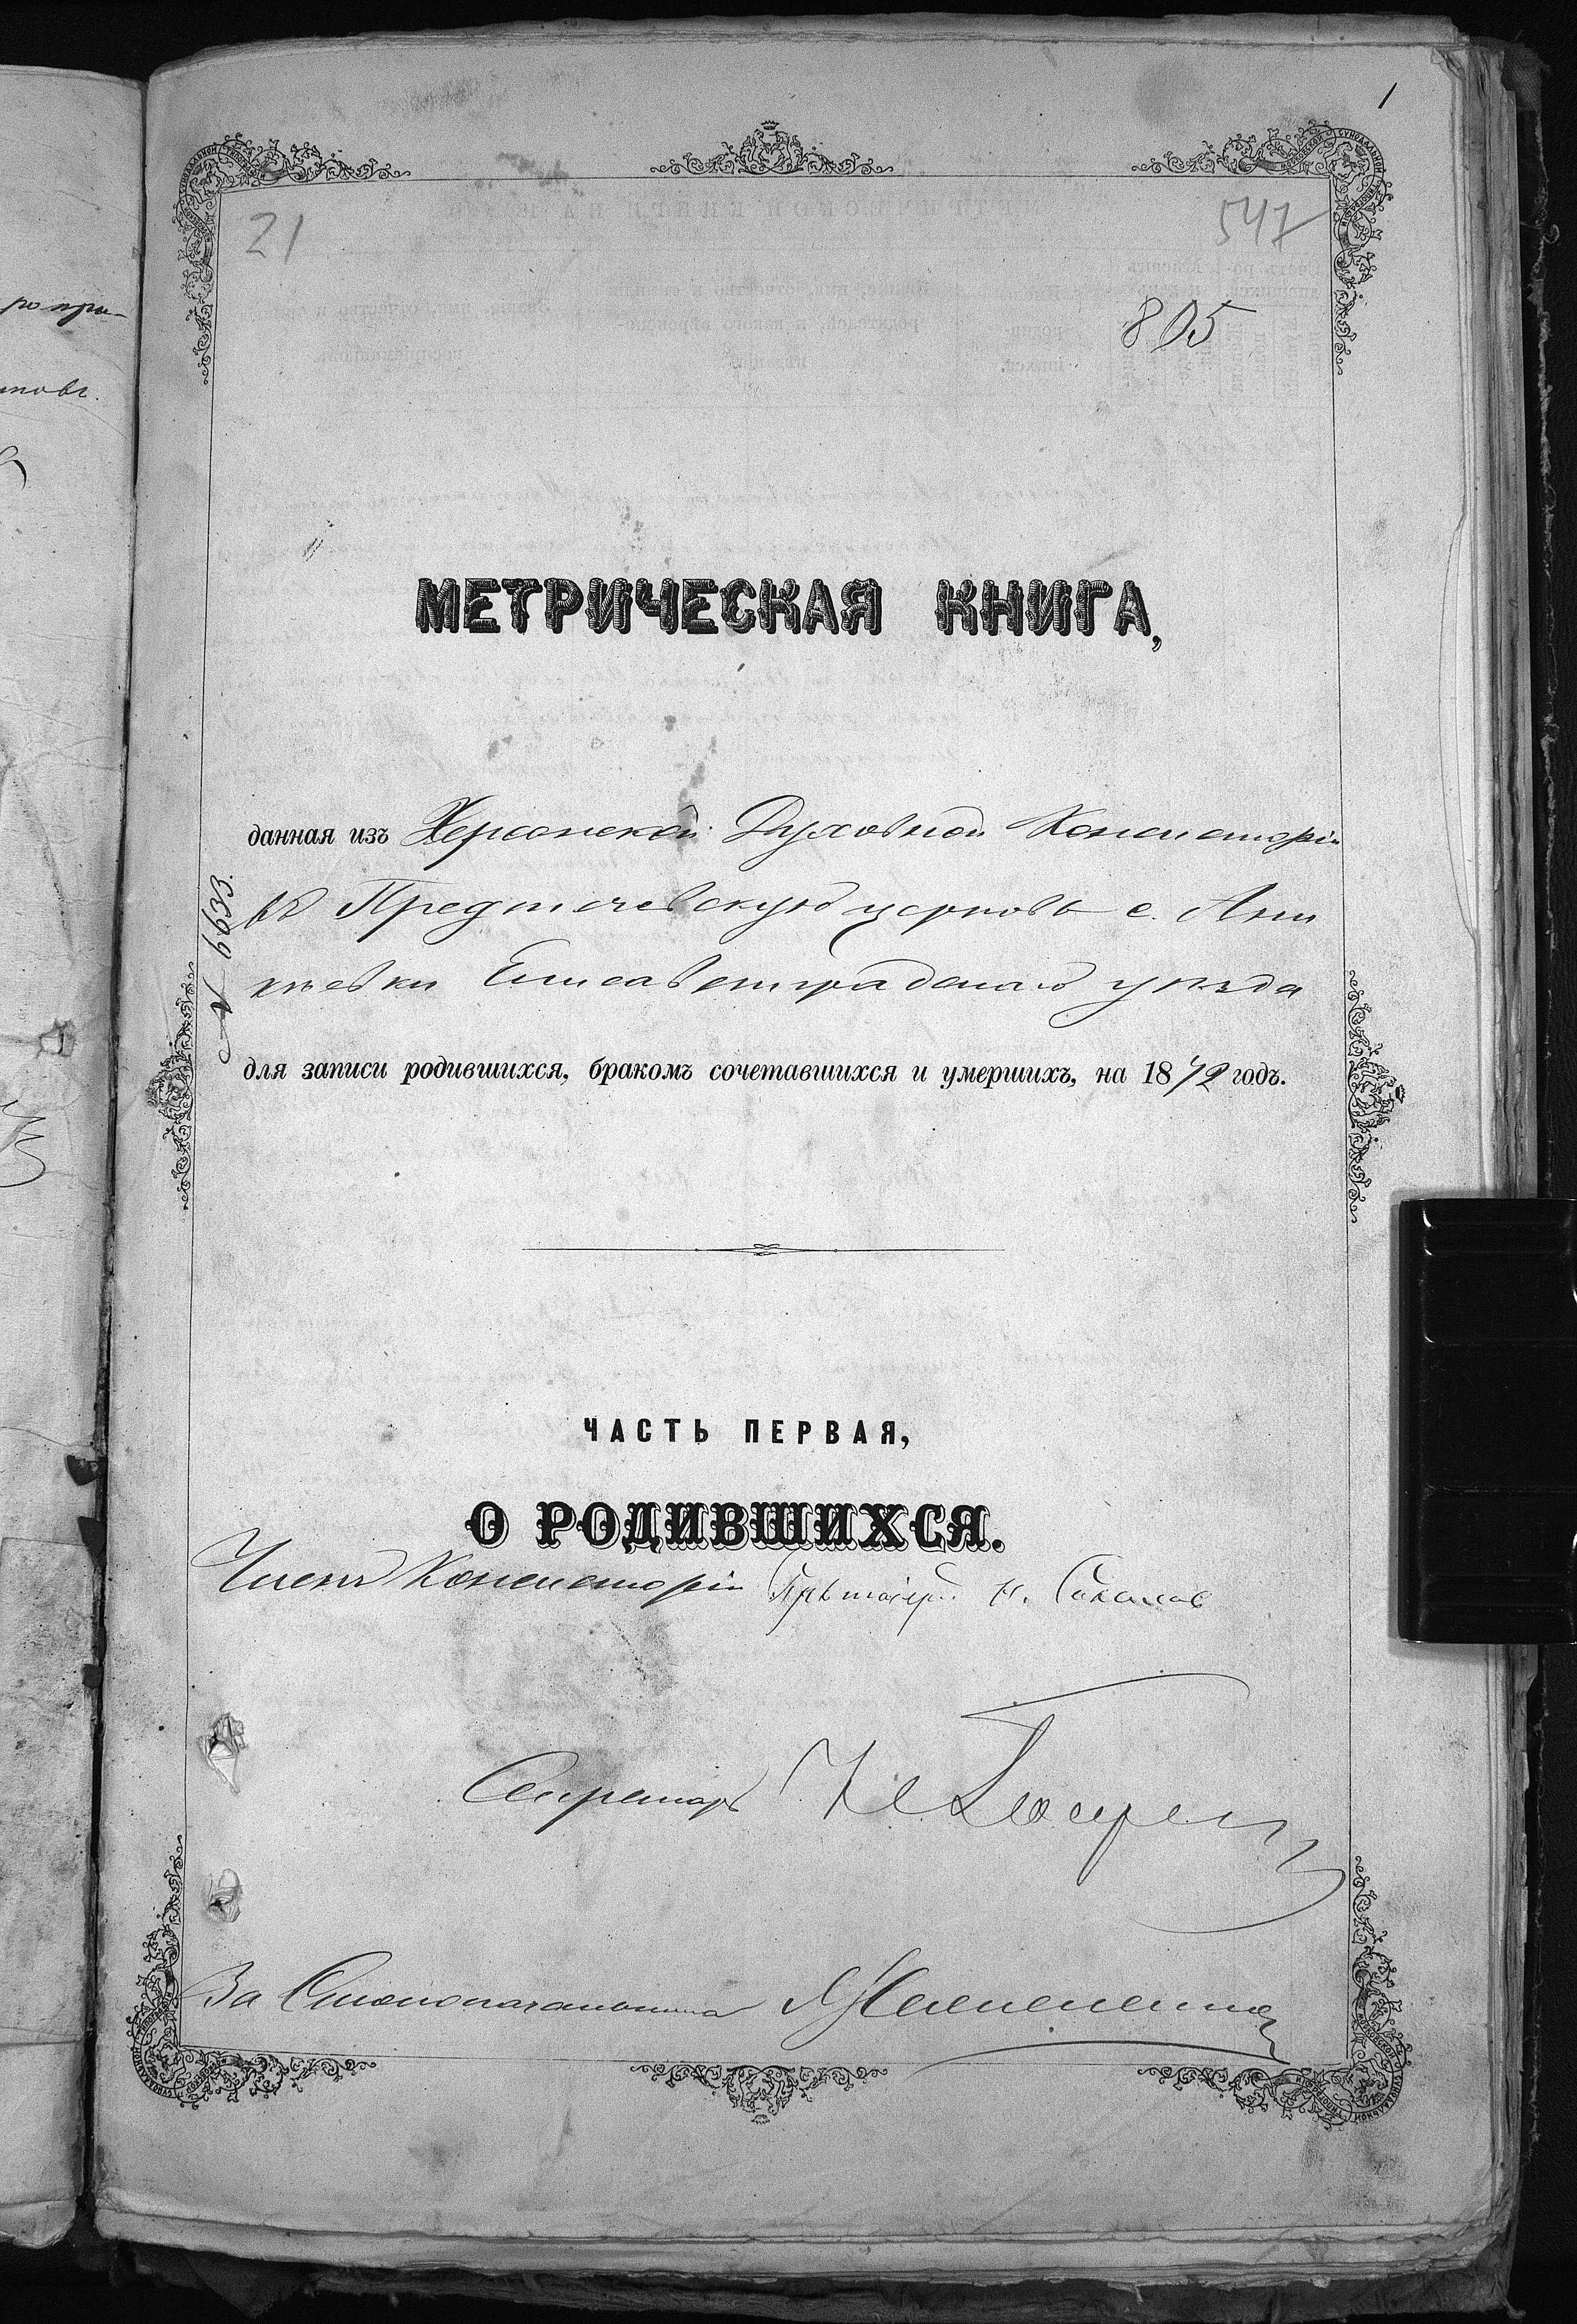 1
21
547
805
МЕТРИЧЕСКАЯ КНИГА,
данная изъ Херсонской Духовной Консисторіи
№ 6633.
въ Предтечевскую церковь с. Ани
кѣевки Елисаветградскаго уѣзда
для записи родившихся, бракомъ сочетавшихся и умершихъ, на 1872 годъ.
ЧАСТЬ ПЕРВАЯ,
О РОДИВШИХСЯ.
Членъ Консисторіи
Секретарь
За Столоначальника